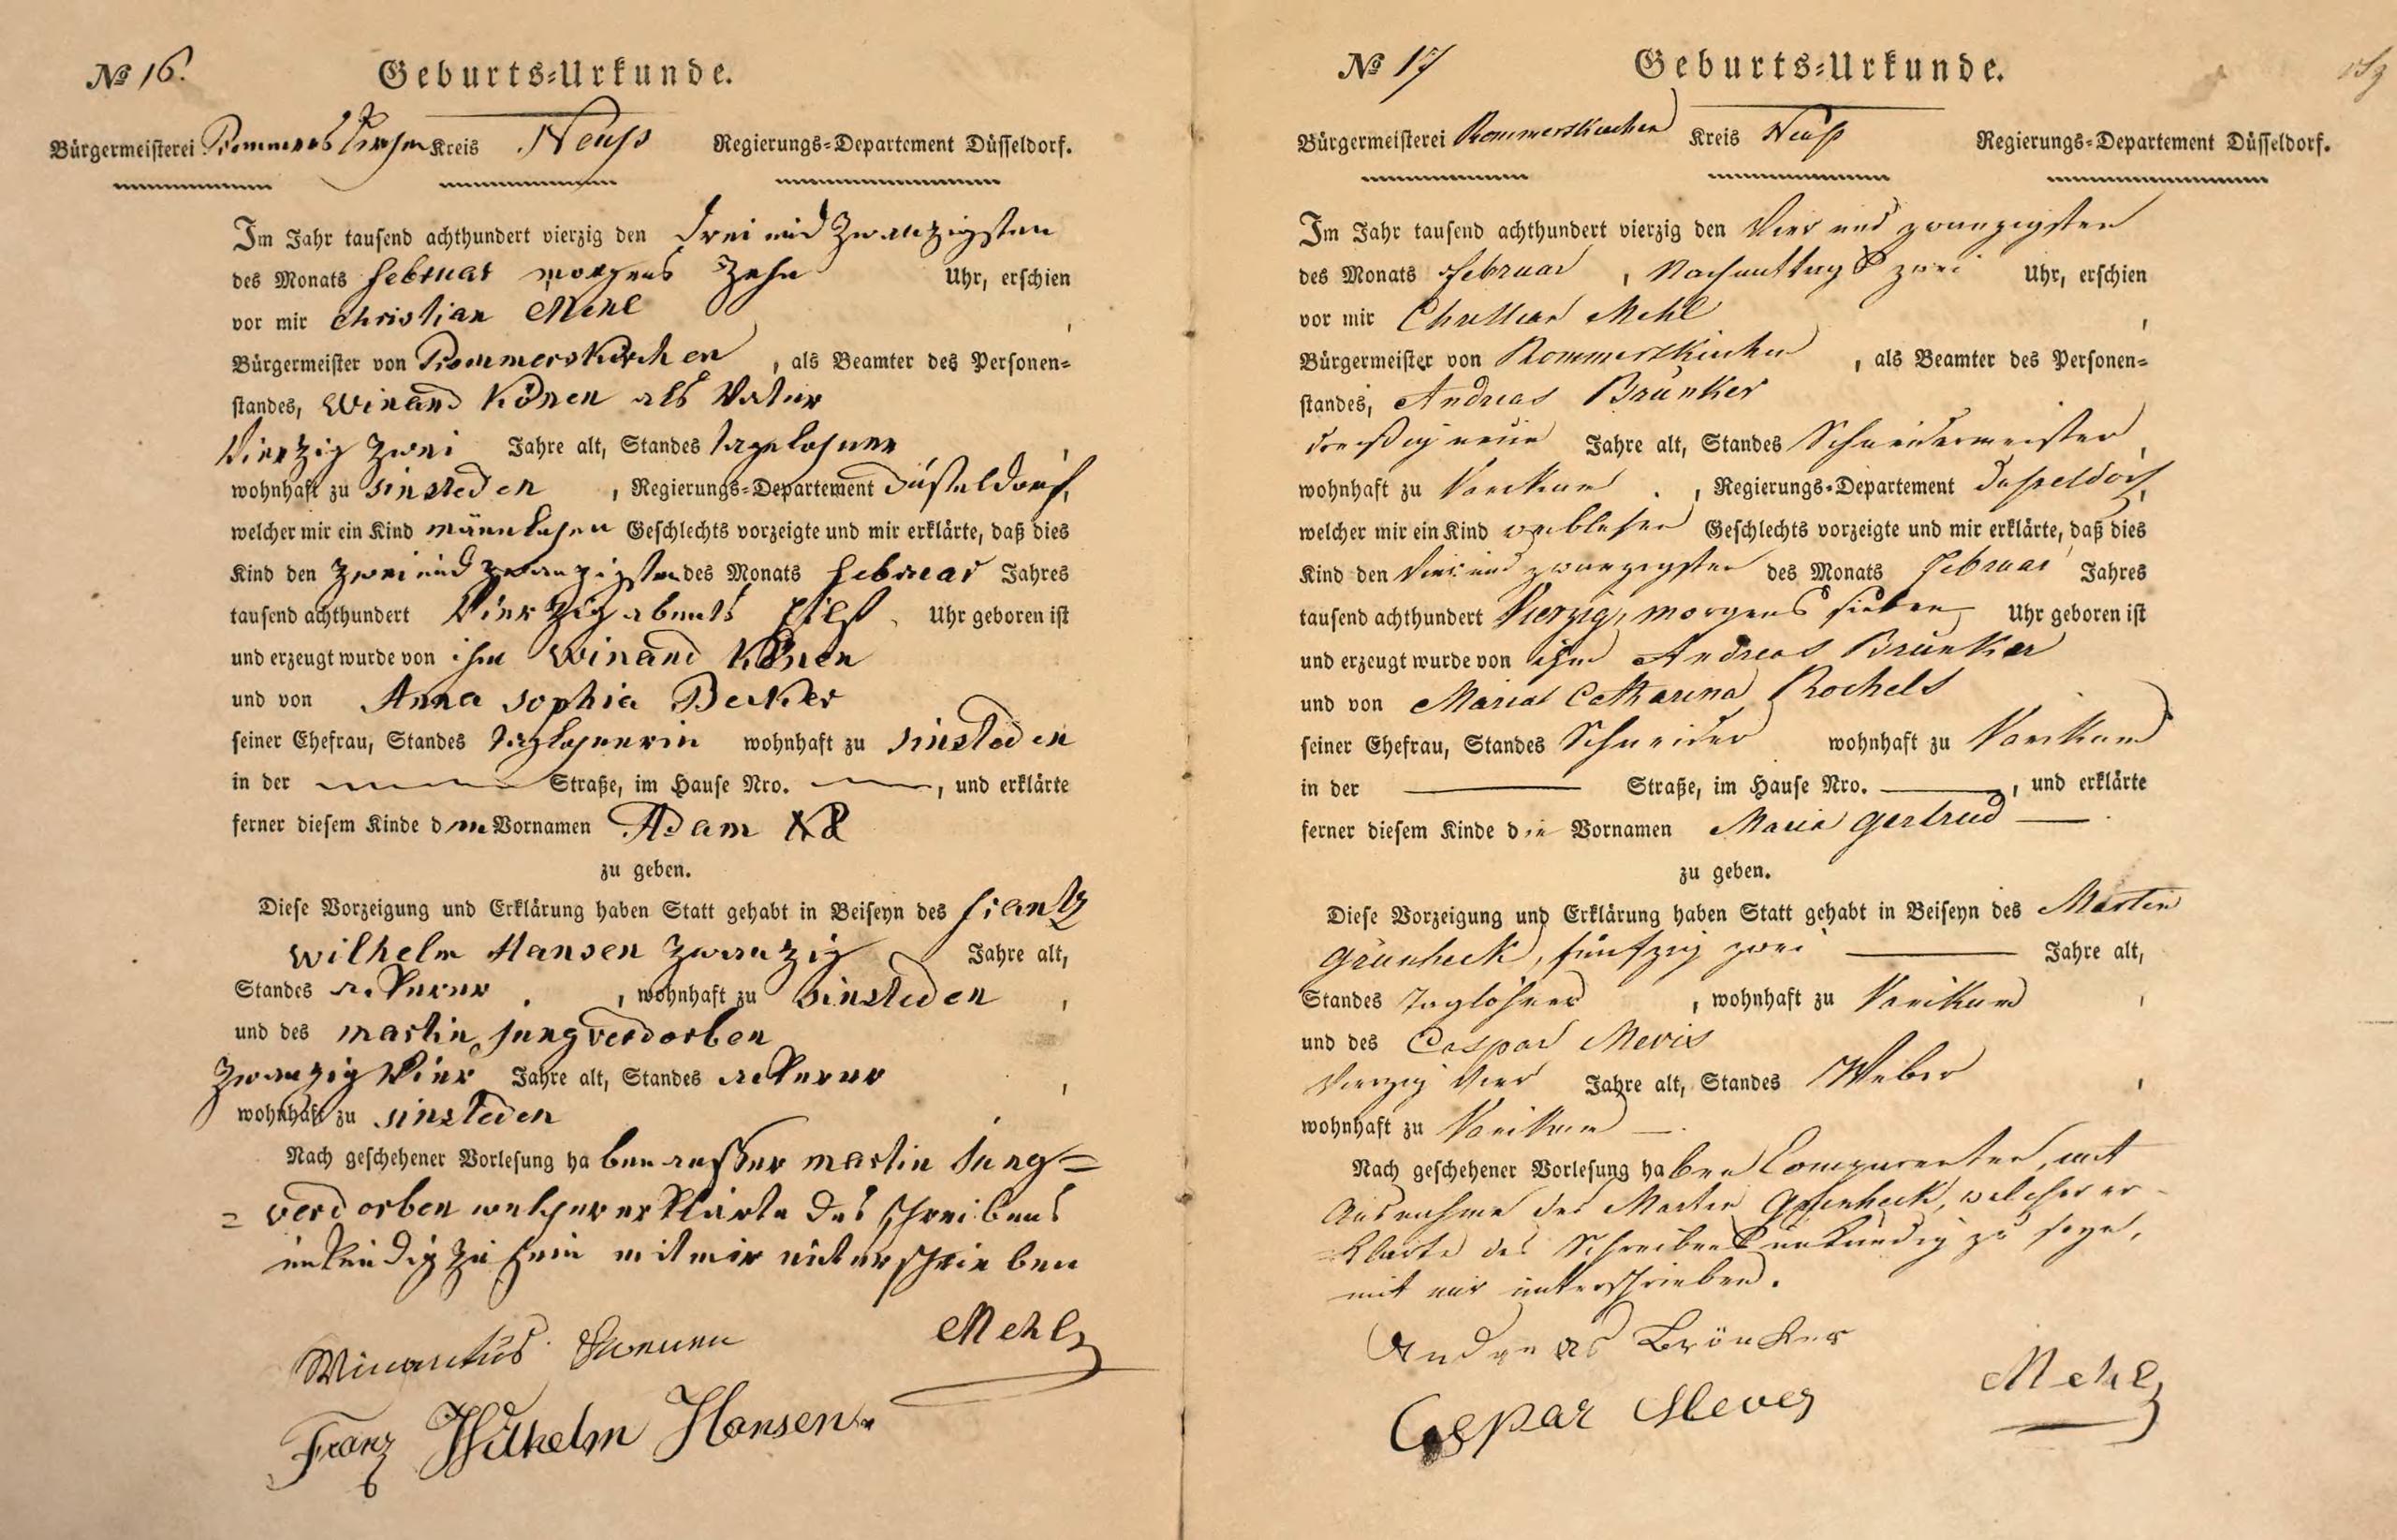 No 16.
Geburts-Urkunde.
Bürgermeisterei Rommerskirchen Kreis Neuß Regierungs-Departement Düsseldorf.
Im Jahr tausend achthundert vierzig den drei und zwanzigsten
des Monats Februar morgens Zehn Uhr, erschien
vor mir Christian Mehl,
Bürgermeister von Rommerskirchen, als Beamter des Personen-
standes, Winand Könen als Vater
Vierzig zwei Jahre alt, Standes Tagelöhner,
wohnhaft zu Sinsteden, Regierungs-Departement Düsseldorf,
welcher mir ein Kind männlichen Geschlechts vorzeigte und mir erklärte, daß dies
Kind den zwei und zwanzigsten des Monats Februar Jahres
tausend achthundert Vierzig abends Uhr geboren ist
und erzeugt wurde von ihm Winand Könen
und von Anna Sophia Becker
seiner Ehefrau, Standes Taglöhnerin wohnhaft zu Sinsteden
in der Straße, im Hause Nro. , und erklärte
ferner diesem Kinde den Vornamen Adam
zu geben.
Diese Vorzeigung und Erklärung haben Statt gehabt in Beiseyn des Frantz
Wilhelm Hansen zwanzig Jahre alt,
Standes Ackerer, wohnhaft zu Sinsteden,
und des Martin Jungverdorben
zwanzig Vier Jahre alt, Standes Ackerer,
wohnhaft zu Sinsteden
Nach geschehener Vorlesung haben außer Martin Jung=
= verdorben welcher erklärte des schreibens
unkündig zu sein mit mir unterschrieben
Mehl
Winandus Koenen
Franz Wilhelm Hansen
No 17
Geburts-Urkunde.
Bürgermeisterei Rommerskirchen Kreis Neuß Regierungs-Departement Düsseldorf.
Im Jahr tausend achthundert vierzig den Vier und zwanzigsten
des Monats Februar, Nachmittags zwei Uhr, erschien
vor mir Christian Mehl,
Bürgermeister von Rommerskirchen, als Beamter des Personen-
standes, Andreas Brünker
dreißig neun Jahre alt, Standes Schneidermeister,
wohnhaft zu Vanikum, Regierungs-Departement Düsseldorf,
welcher mir ein Kind weiblichen Geschlechts vorzeigte und mir erklärte, daß dies
Kind den Vier und zwanzigsten des Monats Februar Jahres
tausend achthundert Vierzig, morgens sieben Uhr geboren ist
und erzeugt wurde von ihm Andreas Brünker
und von Maria Catharina Rochels
seiner Ehefrau, Standes Schneider wohnhaft zu Vanikum
in der Straße, im Hause Nro. , und erklärte
ferner diesem Kinde die Vornamen Maria Gertrud
zu geben.
Diese Vorzeigung und Erklärung haben Statt gehabt in Beiseyn des Martin
Grünheck, fünfzig zwei Jahre alt,
Standes Taglöhner, wohnhaft zu Vanikum,
und des Caspar Mevis
Vierzig Vier Jahre alt, Standes Weber,
wohnhaft zu Vanikum
Nach geschehener Vorlesung haben Comparenten, mit
Ausnahme des Martin Grünheck, welcher er-
klärte des Schreibens unkündig zu seyn,
mit mir unterschrieben.
Andreas Brönker
Mehl
Caspar Meves